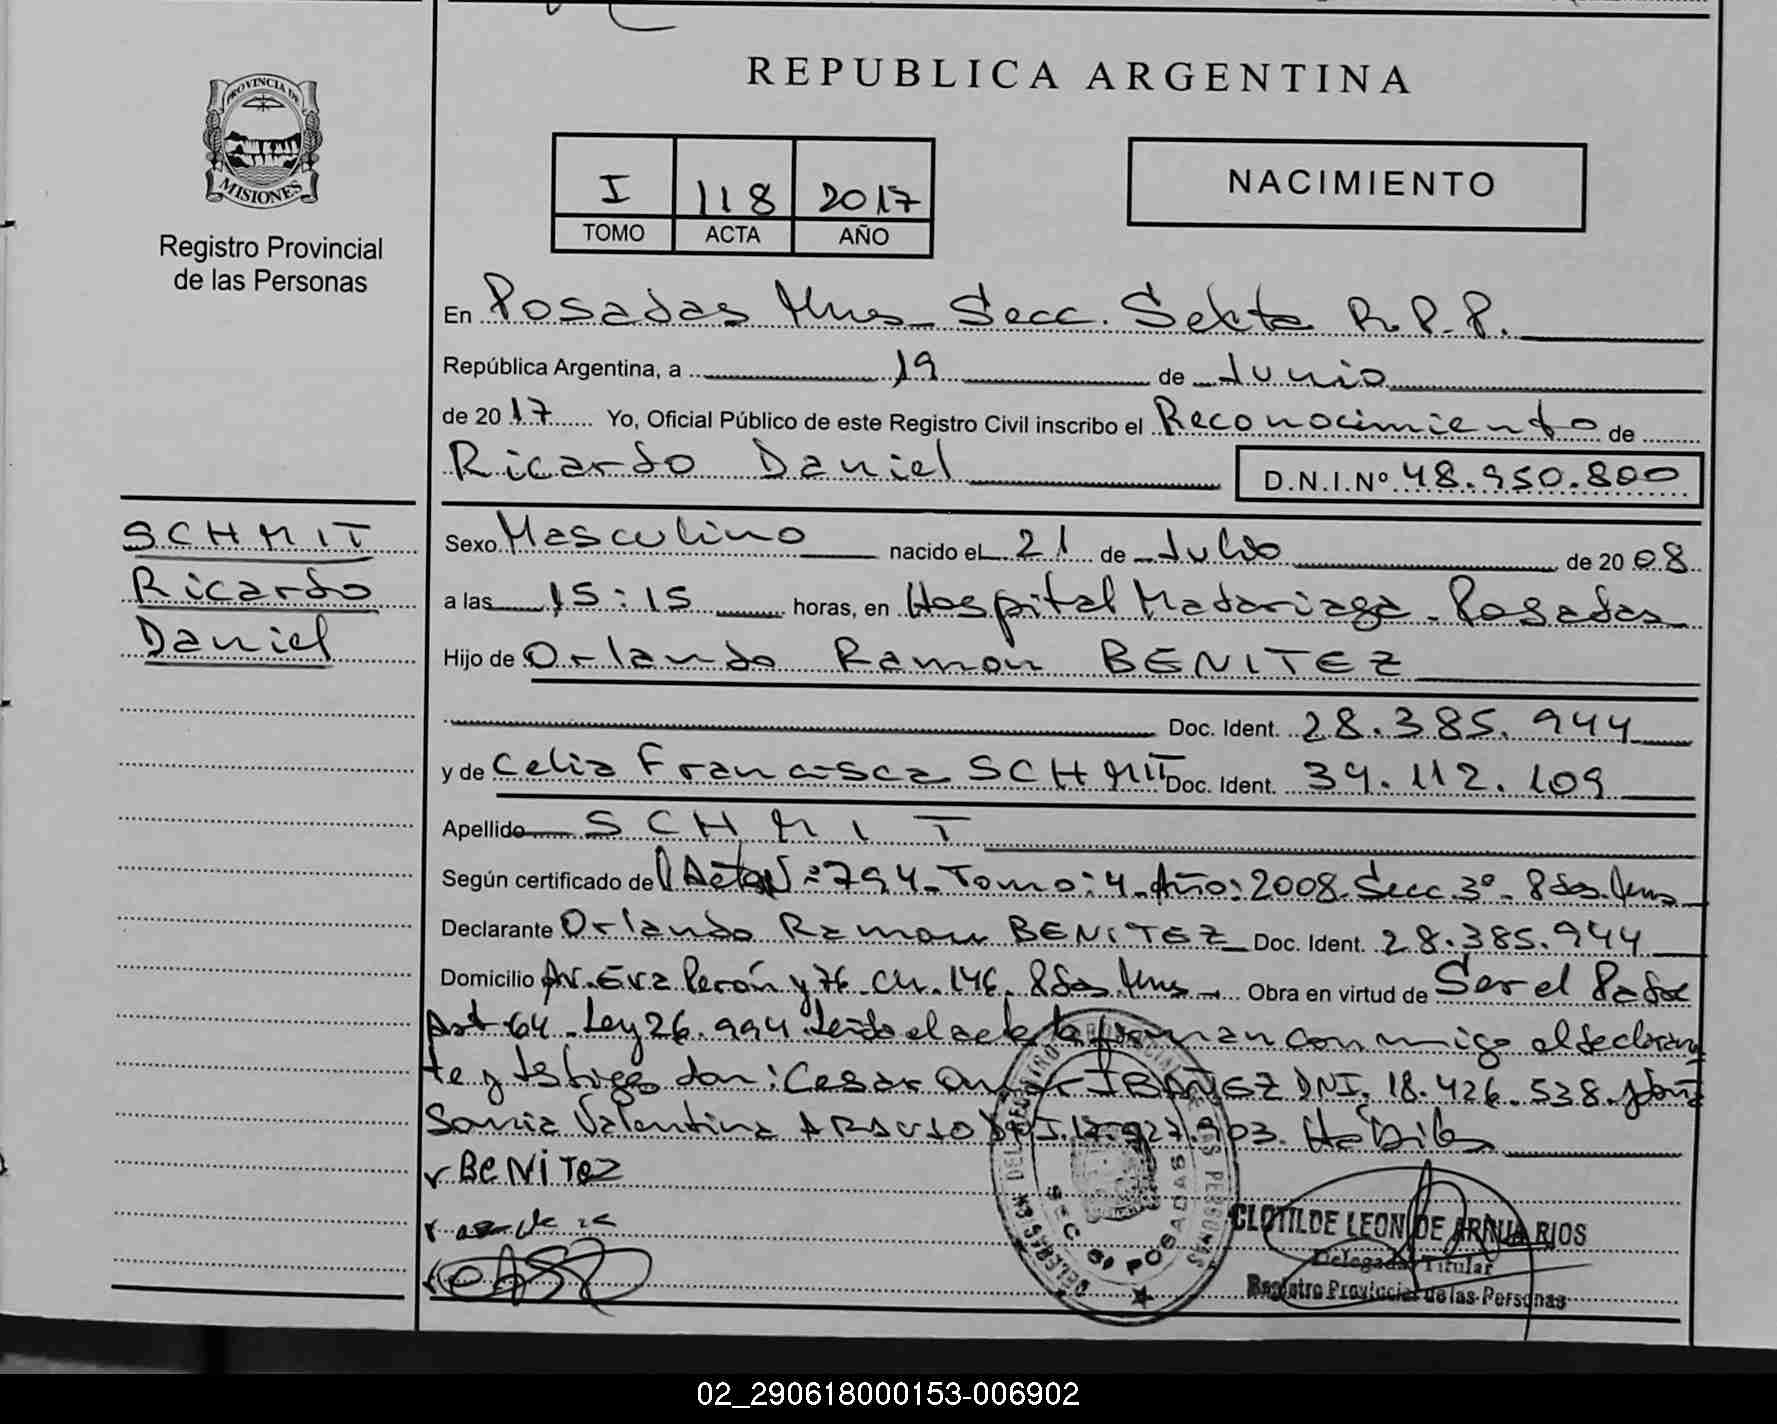 REPUBLICA ARGENTINA
PROVINCIA DE
MISIONES
Registro Provincial
de las Personas
I 118 2017
TOMO ACTA AÑO
NACIMIENTO
En Posadas Mnes Secc. Sekta R.P.P.
República Argentina, a 19 de Junio
de 2017 Yo, Oficial Público de este Registro Civil inscribo el Reconocimiento de
Ricardo Daniel D.N.I.Nº 48.950.800
SCHMIT
Ricardo
Daniel
Sexo Masculino nacido el 21 de Julio de 2008
a las 15:15 horas, en Hospital Madariaga. Posadas
Hijo de Orlando Ramon BENITEZ
Doc. Ident. 28.385.944
y de Celia Francisca SCHMIT Doc. Ident. 34.112.109
Apellido SCHMIT
Según certificado de Acta Nº: 794. Tomo: 4. Año: 2008. Secc. 3º. Psdas. Mnes
Declarante Orlando Ramon BENITEZ Doc. Ident. 28.385.944
Domicilio Av. Eva Perón y 76. CH. 146. Psdas Mns. Obra en virtud de Ser el Padre
Art 64. Ley 26.994. Leido el acta la firman conmigo el declaran
te y testigos don: Cesar Omar IBAÑEZ DNI. 18.426.538. y doña
Sonia Valentina ARAUJO D.N.I. 17.927.903. Habiles
BENITEZ
SECC 6º POSADAS
CLOTILDE LEON DE ARNUA RIOS
Delegada Titular
Registro Provincial de las Personas
02_290618000153-006902